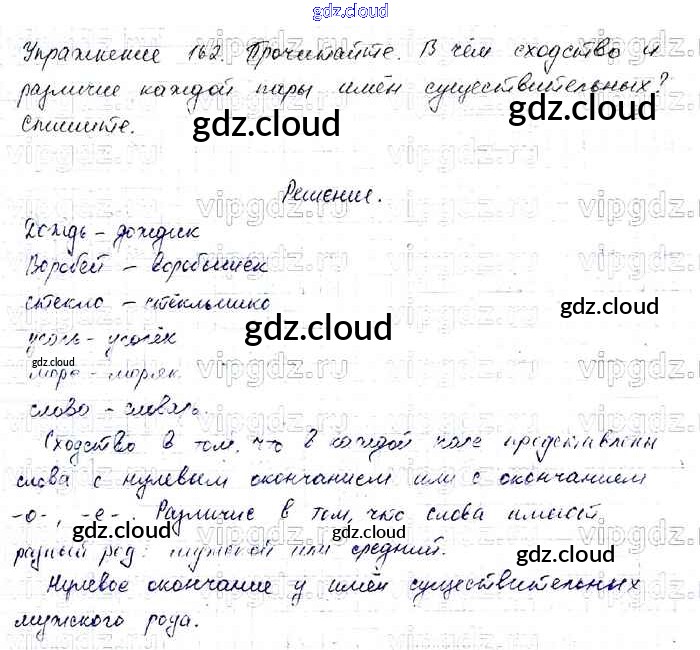 gdz.cloud
Упражнение 162. Прочитайте. В чём сходство и
различие каждой пары имён существительных?
Спишите.
gdz.cloud
gdz.cloud
Решение.
Дождь – дождик
Воробей – воробышек
стекло – стёклышко
gdz.cloud
gdz.cloud
gdz.cloud
море – моряк
слово – словарь.
Сходство в том, что в каждой паре представлены
слова с нулевым окончанием или с окончанием
-о-, -е-. Различие в том, что слова имеют
gdz.cloud
gdz.cloud
разный род: мужской или средний.
gdz.cloud
Нулевое окончание у имён существительных
мужского рода.
vipgdz.ru